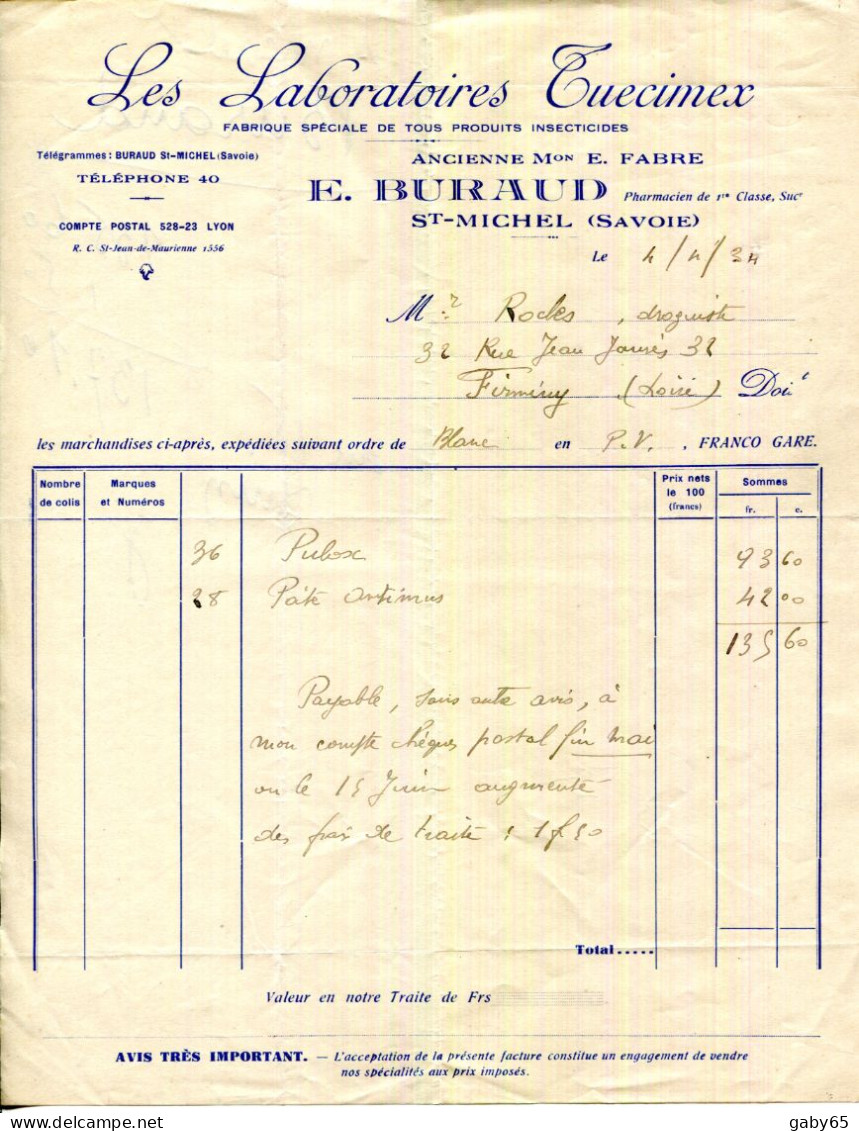 Les Laboratoires Tuecimex
FABRIQUE SPÉCIALE DE TOUS PRODUITS INSECTICIDES
Télégrammes: BURAUD St-MICHEL (Savoie)
TÉLÉPHONE 40
COMPTE POSTAL 528-23 LYON
R. C. St-Jean-de-Maurienne 1556
ANCIENNE Mon E. FABRE
E. BURAUD Pharmacien de 1re Classe, Sucr
ST-MICHEL (SAVOIE)
Le 4/4/34
Mr Rocles, droguiste
32 Rue Jean Jaurès 32
Firminy (Loire) Doit
les marchandises ci-après, expédiées suivant ordre de Blanc en P.V., FRANCO GARE.
Nombre de colis
Marques et Numéros
Prix nets le 100 (francs)
Sommes
fr. c.
36 Pulox 93 60
28 Pâte Antimus 42 00
135 60
Payable, sans autre avis, à
mon compte chèques postal fin mai
ou le 15 Juin augmenté
des frais de traite : 1f50
Total.....
Valeur en notre Traite de Frs
AVIS TRÈS IMPORTANT. — L'acceptation de la présente facture constitue un engagement de vendre
nos spécialités aux prix imposés.
gaby65